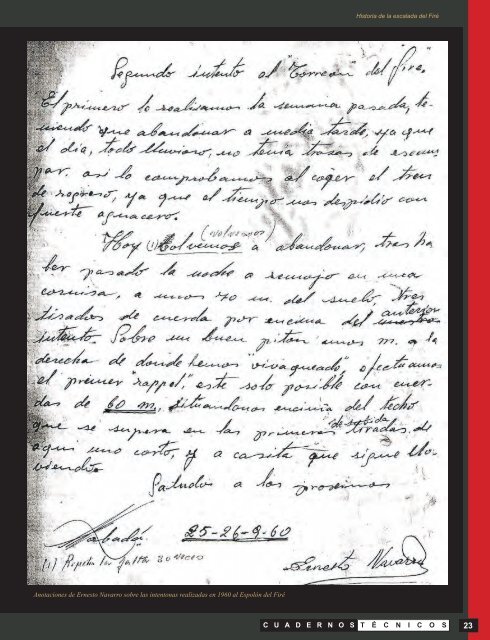 Historia de la escalada del Firé
Segundo intento al "Torreón" del fire"
El primero lo realizamos la semana pasada, te-
niendo que abandonar a media tarde, ya que
el dia, todo lluvioso, no tenia trazas de escam-
par. asi lo comprobamos al coger el tren
de regreso, ya que el tiempo nos despidio con
fuerte aguacero.
(volvemos)
Hoy (1) bolvemos a abandonar, tras ha
ber pasado la noche a remojo en una
cornisa, a unos 70 m. del suelo, tres
tiradas de cuerda por encima del anterior
intento. Sobre un buen piton unos m. a la
derecha de donde hemos "vivaqueado", efectuamos
el primer rappel, este solo posible con cuer-
das de 60 m. situandonos encima del techo
que se supera en las primeras "de subida" tiradas. de
aqui uno corto, y a casita que sigue llo-
viendo.
Saludos a los proximos
Sabadá.
25-26-9-60
(1) Repetir por falta 30 veces
Ernesto Navarro
Anotaciones de Ernesto Navarro sobre las intentonas realizadas en 1960 al Espolón del Firé
CUADERNOS TÉCNICOS 23